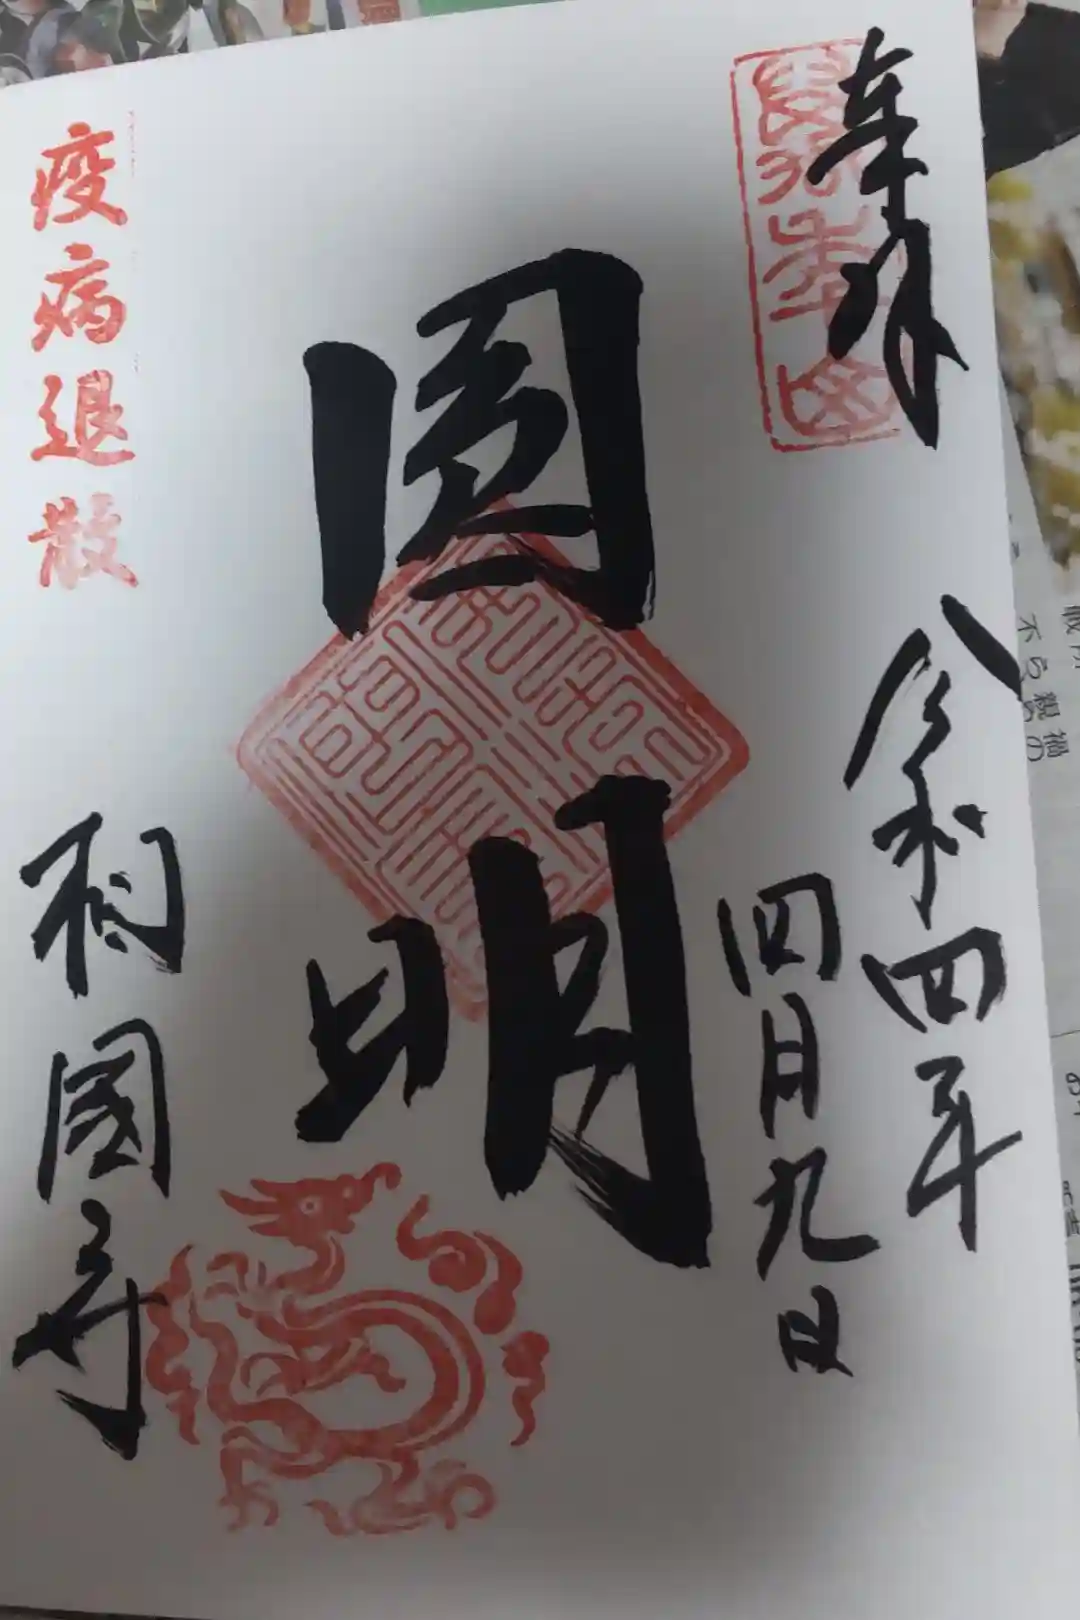 奉拝
令和四年
四月九日
圓明
相國寺
疫病退散